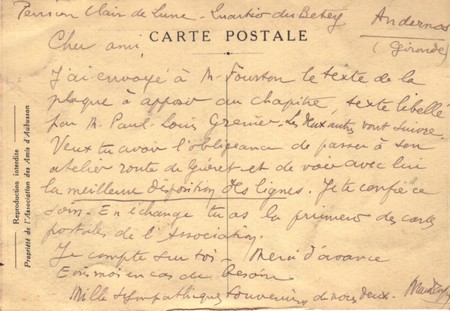 Pension Clair de Lune - Quartier du Betey
Andernos
(Gironde)
Cher ami,
CARTE POSTALE
J'ai envoyé à M. Fourton le texte de la
plaque à apposer au chapitre, texte libellé
par M. Paul-Louis Grenier. Les deux autres vont suivre.
Veux-tu avoir l'obligeance de passer à son
atelier route de Guéret et de voir avec lui
la meilleure disposition des lignes. Je te confie ce
soin. En échange tu as la primeur des cartes
postales de l'Association.
Je compte sur toi - Merci d'avance
Ecris-moi en cas de besoin
Mille sympathiques souvenirs de nous deux.
Reproduction interdite
Propriété de l'Association des Amis d'Aubusson